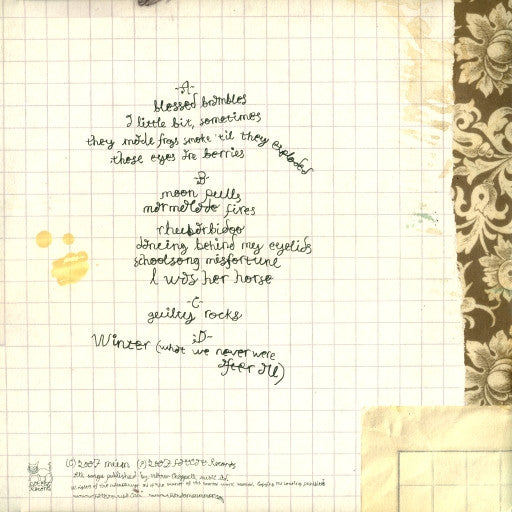 -A-
blessed brambles
I little bit, sometimes
they made frogs smoke 'til they exploded
those eyes are berries
-B-
moon pulls
marmalade fires
rhubarbidoo
dancing behind my eyelids
schoolsong misfortune
I was her horse
-C-
guilty rocks
-D-
Winter (what we never were
after all)
(C) 2007 múm (P) 2007 FatCat Records
All songs published by